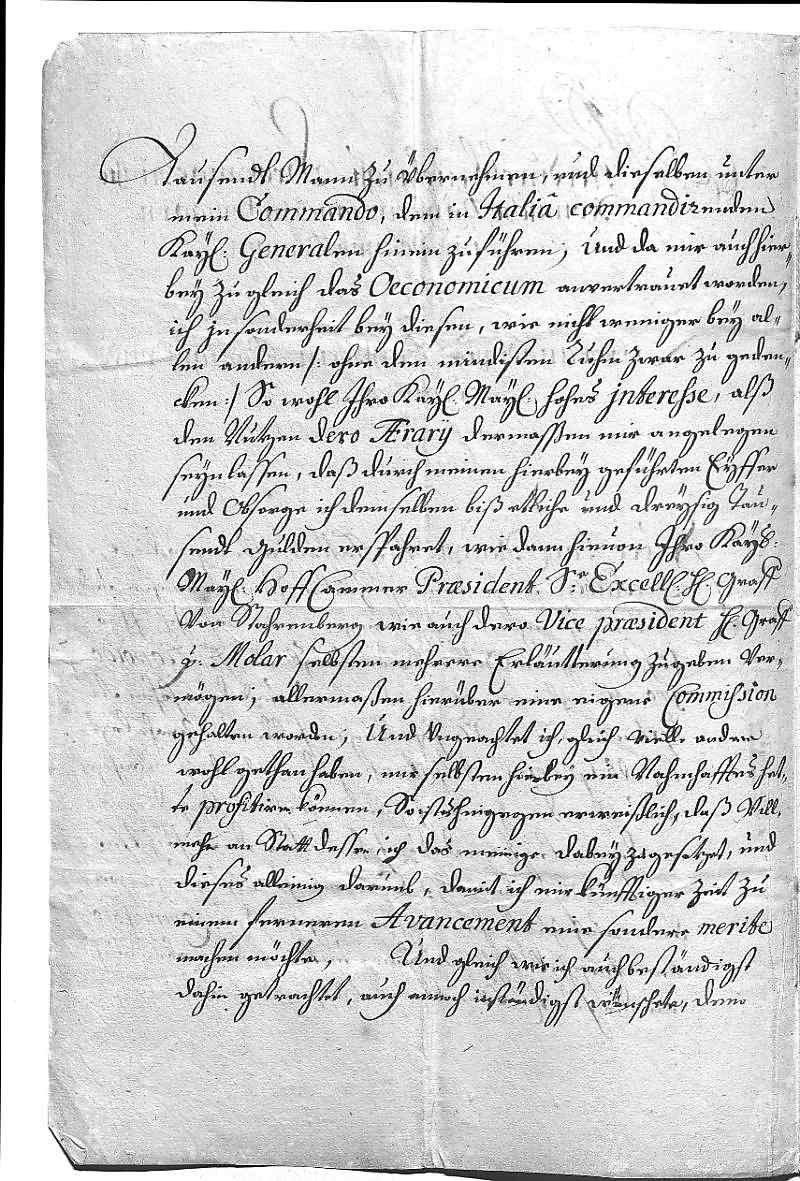 Tausendt Mann zu Übernehmen, und dieselben unter
mein Commando, dem in Italiâ commandirenden
Kayl: Generalen hinein zuführen; Und da mir auch hier-
bey zugleich das Oeconomicum anvertrauet worden,
ich insonderheit bey diesen, wie nicht weniger bey al-
len andern /: ohne den mindisten Ruhm zwar zu geden-
cken :/ So wohl Ihro Kayl: Mayl: hohes jnteresse, alß
den Nutzen dero Ærarij dermassen mir angelegen
seyn lassen, daß durch meinen hierbey geführten Eyffer
und Obsorge ich demselben biß etliche und dreysig Tau-
sendt Gulden erspahret, wie dann hievon Ihro Kayl:
Mayl: Hoff Cammer Præsident. Sr. Excell: H: Graff
Von Stahrenberg wie auch dero Vice præsident H: Graff
v: Molar selbsten mehrere Erläutterung zugeben Ver-
mögen; allermaßen hierüber eine eigene Commission
gehalten worden; Und Ungeachtet ich, gleich viele andere
wohl gethan haben, mir selbsten hierbey ein Nahmhafftes het-
te profitiren können, So ists hingegen erweißlich, daß Viel-
mehr an Statt dessen ich das meinige dabey zugesetzet, und
dieses alleinig darumb, damit ich mir künfftiger Zeit zu
einem ferneren Avancement eine sondere merite
machen möchte, Und gleich wie ich auch beständigst
dahin getrachtet, auch annoch inständigst wünschete, dero